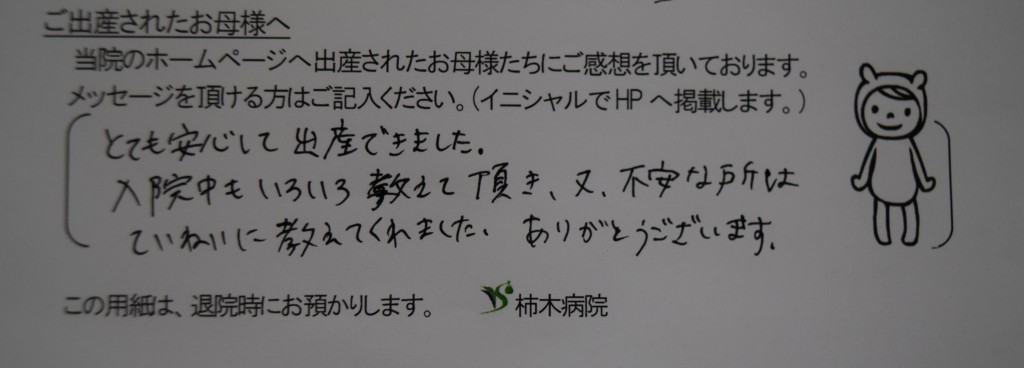 ご出産されたお母様へ
当院のホームページへ出産されたお母様たちにご感想を頂いております。
メッセージを頂ける方はご記入ください。(イニシャルでHPへ掲載します。)
とても安心して出産できました。
入院中もいろいろ教えて頂き、又、不安な所は
ていねいに教えてくれました。ありがとうございます。
この用紙は、退院時にお預かりします。 柿木病院